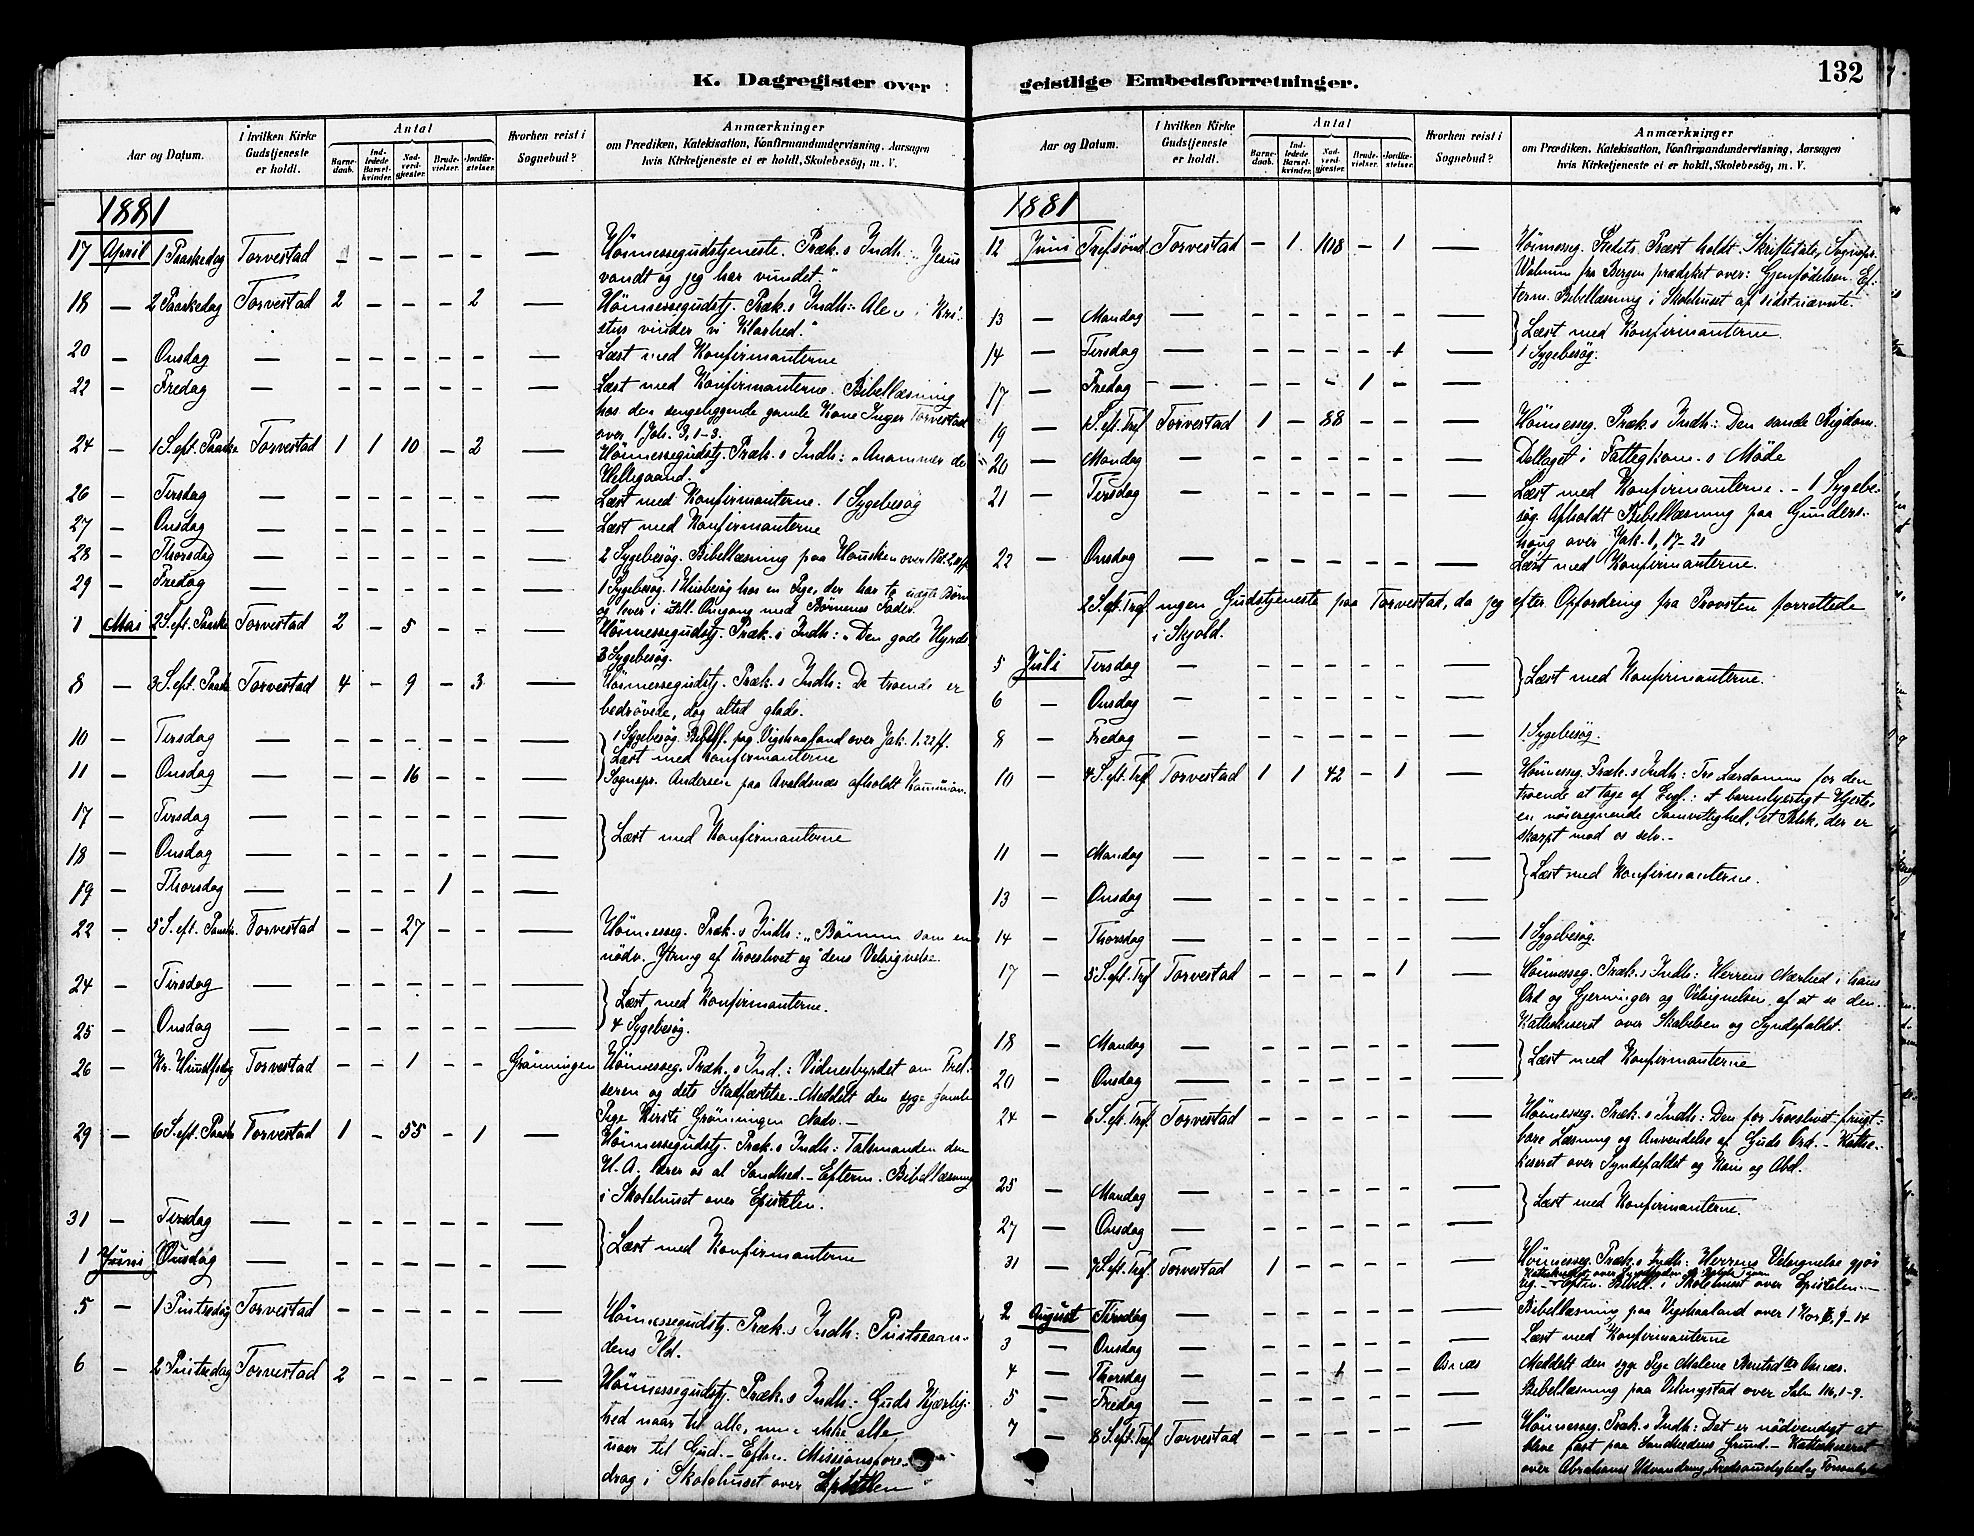 K. Dagregister over
Aar og Datum.
I hvilken Kirke Gudstjeneste er holdt.
Antal
Barnedaab.
Indledede Barselkvinder.
Nadverdgjester.
Brudevielser.
Jordfæstelser.
Hvorhen reist i Sognebud?
Anmærkninger
om Prædiken, Katekisation, Konfirmandundervisning. Aarsagen
hvis Kirketjeneste ei er holdt, Skolebesög, m. V.
1881
17 April 1 Paaskedag Torvestad – – – – – — Höimessegudstjeneste. Præk.s Indh: „Jesus
vandt og jeg har vundet"
18 — 2 Paaskedag Torvestad 2 – – – 2 — Höimessegudstj. Præk.s Indh:
vinder vi Klarhed."
20 — Onsdag — – – – – – — Læst med Konfirmanterne
22 — Fredag — – – – – – — Læst med Konfirmanterne. Bibellæsning
hos den sengeliggende gamle Kone Inger Torvestad
over 1 Joh. 3, 1-3.
24 — 1 S. eft. Paaske Torvestad 1 1 10 – 2 — Höimessegudstj. Præk.s Indh: „Anammer de
Helligaand."
26 — Tirsdag — – – – – – — Læst med Konfirmanterne. 1 Sygebesög
27 — Onsdag — – – – – – — Læst med Konfirmanterne
28 — Thorsdag — – – – – – — 2 Sygebesög. Bibellæsning paa Hausken over
29 — Fredag — – – – – – — 1 Sygebesög. 1 Husbesög hos en Pige, der har to uægte Börn
og lever i utill. Omgang med Börnenes Fader.
1 Mai 2 S. eft. Paaske Torvestad 2 – 5 – – — Höimessegudstj. Præk.s Indh: „Den gode Hyrde
3 Sygebesög.
8 — 3 S. eft. Paaske Torvestad 4 – 9 – 3 — Höimessegudstj. Præk.s Indh: De troende er
bedrövede, dog altid glade.
10 — Tirsdag — – – – – – — 1 Sygebesög. paa Vigshaaland over Jak. 1. 22 ff.
Læst med Konfirmanterne
11 — Onsdag — – – 16 – – — Sognepr. Andersen paa Avaldsnes afholdt Kommunion.
17 — Tirsdag — – – – – – —
Læst med Konfirmanterne
18 — Onsdag — – – – – – —
19 — Thorsdag — – – – 1 – —
22 — 5 S. eft. Paaske Torvestad – – 27 – – — Höimesseg. Præk.s Indh: „Bönnen som en
nödv. Ytring af Troeslivet og dens Velsignelse.
24 — Tirsdag — – – – – – —
Læst med Konfirmanterne.
25 — Onsdag — – – – – – — 4 Sygebesög.
26 — Kr. Himmelfdag Torvestad – – 1 – – Grönningen Höimesseg. Præk.s Ind.: Vidnesbyrdet om Frel-
seren og dets Stadfæstelse. – Meddelt den syge gamle
Pige Kirsti Grönningen Nadv. –
29 — 6 S. eft. Paaske Torvestad 1 – 55 – 1 — Höimessegudstj. Præk.s Indh: Talsmanden den
H. A. lærer os al Sandhed. – Efterm. Bibellæsning
i Skolehuset over Epistelen.
31 — Tirsdag — – – – – – —
Læst med Konfirmanterne
1 Juni Onsdag — – – – – – —
5 — 1 Pintsedag Torvestad – – – – – — Höimessegudstj. Præk.s Indh: Pintseaan-
dens Ild.
6 — 2 Pintsedag Torvestad 2 – – – – — Höimessegudstj. Præk.s Indh: Guds Kjærlig-
hed naar til alle, men ikke alle
naar til Gud. – Efterm. Missionsfore-
drag i Skolehuset over Epistelen
geistlige Embedsforretninger.
132
Aar og Datum.
I hvilken Kirke Gudstjeneste er holdt.
Antal
Barnedaab.
Indledede Barselkvinder.
Nadverdgjester.
Brudevielser.
Jordfæstelser.
Hvorhen reist i Sognebud?
Anmærkninger
om Prædiken, Katekisation, Konfirmandundervisning, Aarsagen
hvis Kirketjeneste ei er holdt, Skolebesög, m. V.
1881
12 Juni Trefsönd Torvestad – 1 108 – 1 — Höimesseg. Stedets Præst holdt Skriftetale, Sognepr.
fra Bergen prædiket over: Gjenfödelsen. Ef-
term. Bibellæsning i Skolehuset af sidstnævnte.
13 — Mandag — – – – – – —
Læst med Konfirmanterne
14 — Tirsdag — – – – – 1 — 1 Sygebesög.
17 — Fredag — – – – 1 – —
19 — 1 S. eft. Tref Torvestad 1 – 88 – – — Höimesseg. Præk.s Indh: Den sande Rigdom.
20 — Mandag — – – – – – — Deltaget i Fattigkom.s Möde
21 — Tirsdag — – – – – – — Læst med Konfirmanterne. – 1 Sygebe-
sög. Afholdt Bibellæsning paa Gunders-
haug over Jak. 1, 17-21
22 — Onsdag — – – – – – — Læst med Konfirmanterne.
2 S. eft. Tref ingen Gudstjeneste paa Torvestad, da jeg efter Opfordring fra Provsten forrettede
i Skjold.
5 Juli Tirsdag — – – – – – —
Læst med Konfirmanterne.
6 — Onsdag — – – – – – —
8 — Fredag — – – – – – — 1 Sygebesög.
10 — 4 S. eft. Tref Torvestad 1 1 42 – 1 — Höimesseg. Præk.s Indh: Tre Lærdomme for den
troende at tage af Evgl.: et barmhjertigt Hjerte,
en nöieregnende Samvittighed, et Blik, der er
skarpt mod os selv. –
11 — Mandag — – – – – – —
Læst med Konfirmanterne.
13 — Onsdag — – – – – – —
14 — Thorsdag — – – – – – — 1 Sygebesög.
17 — 5 S. eft. Tref Torvestad – – – – 1 — Höimesseg. Præk.s Indh: Herrens Nærhed i hans
Ord og Gjerninger og Velsignelsen af at se den.
Katekiseret over Skabelsen og Syndefaldet.
18 — Mandag — – – – – – —
Læst med Konfirmanterne
20 — Onsdag — – – – – – —
24 — 6 S. eft. Tref Torvestad – – – – – — Höimesseg. Præk.s Indh: Den for Troeslivet frugt-
bare Læsning og Anvendelse af Guds Ord. – Kateki-
kiseret over Syndefaldet og Kain og Abel.
25 — Mandag — – – – – – —
Læst med Konfirmanterne.
27 — Onsdag — – – – – – —
31 — 7 S. eft. Tref Torvestad 1 – – – – — Höimesseg. Præk.s Indh: Herrens Velsignelse gjör
rig. – Eftm. Bibell. i Skolehuset over Epistelen –
2 August Tirsdag — – – – – – — Bibellæsning paa Vigshaaland over 1 Kor. 6, 9-14
3 — Onsdag — – – – – – — Læst med Konfirmanterne
4 — Thorsdag — – – 1 – – Osnæs Meddelt den syge Pige Malene Osnæs.
5 — Fredag — – – – – – — Bibellæsning paa Velingstad over Salm. 116, 1-9.
7 — 8 S. eft. Tref Torvestad – – – – – — Höimesseg. Præk.s Indh: Det er nödvendigt at
blive fast paa Sandhedens Grund. – Katekiseret
over Abrahams Udvandring,